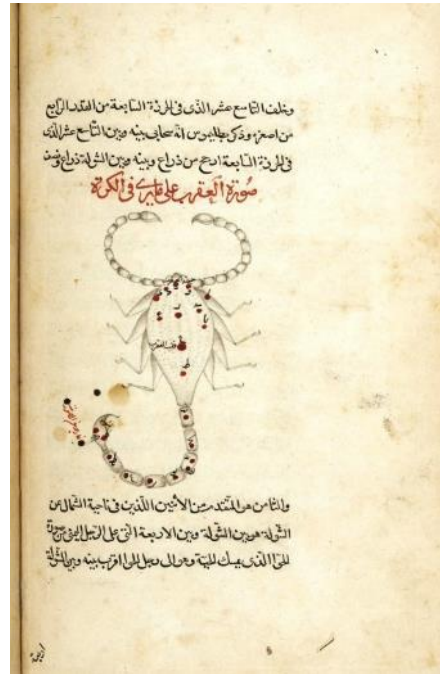 وخلف التاسع عشر الذى فى الخرزة السابعة من القدر الرابع
من اصغره وذكر بطلميوس انه سحابى بينه وبين التاسع عشر الذى
فى الخرزة السابعة ارجح من ذراع وبينه وبين الشولة ذراع ونصف
صورة العقرب على ما يرى فى الكرة
قلب العقرب
والثامن هو المتقدم من الاثنين اللذين فى ناحية الشمال عن
الشولة هو بين الشولة وبين الاربعة التى على الرجل اليمنى من صورة
الحوا الذى يمسك الحية وهو الى رجل الحوا اقرب بينه وبين الشولة